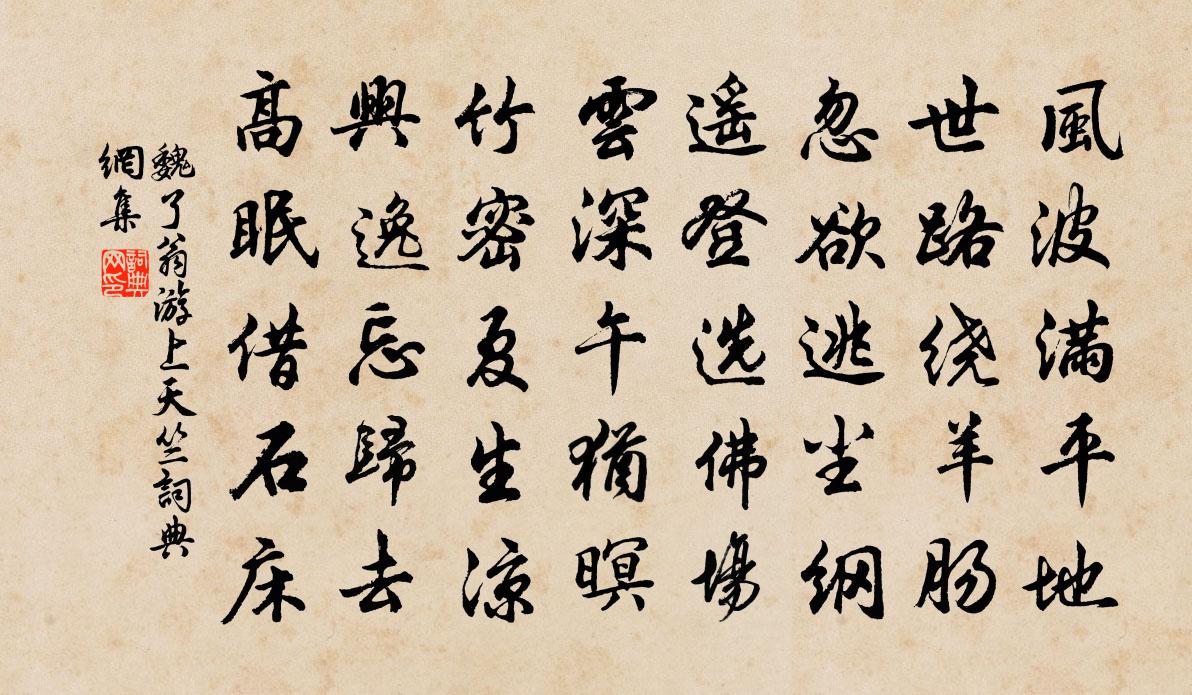 風波满平地
世路绕羊肠
忽欲逃尘纲
遥登选佛場
雲深午猶暝
竹密夏生涼
興逸忘歸去
高眠借石床
魏了翁游上天竺詞典
網集
詞典网印